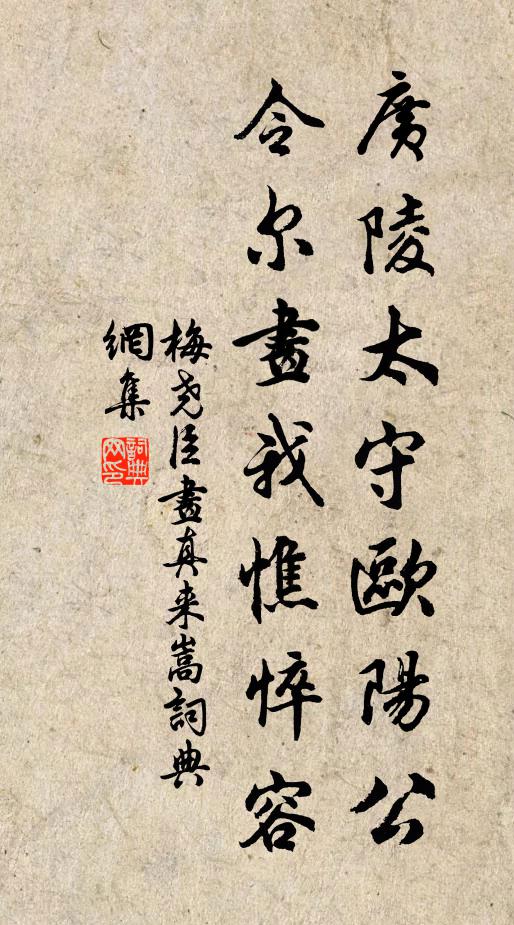 廣陵太守歐陽公
令尔畫我憔悴容
梅堯臣畫真来嵩詞典
網集
詞典
网印